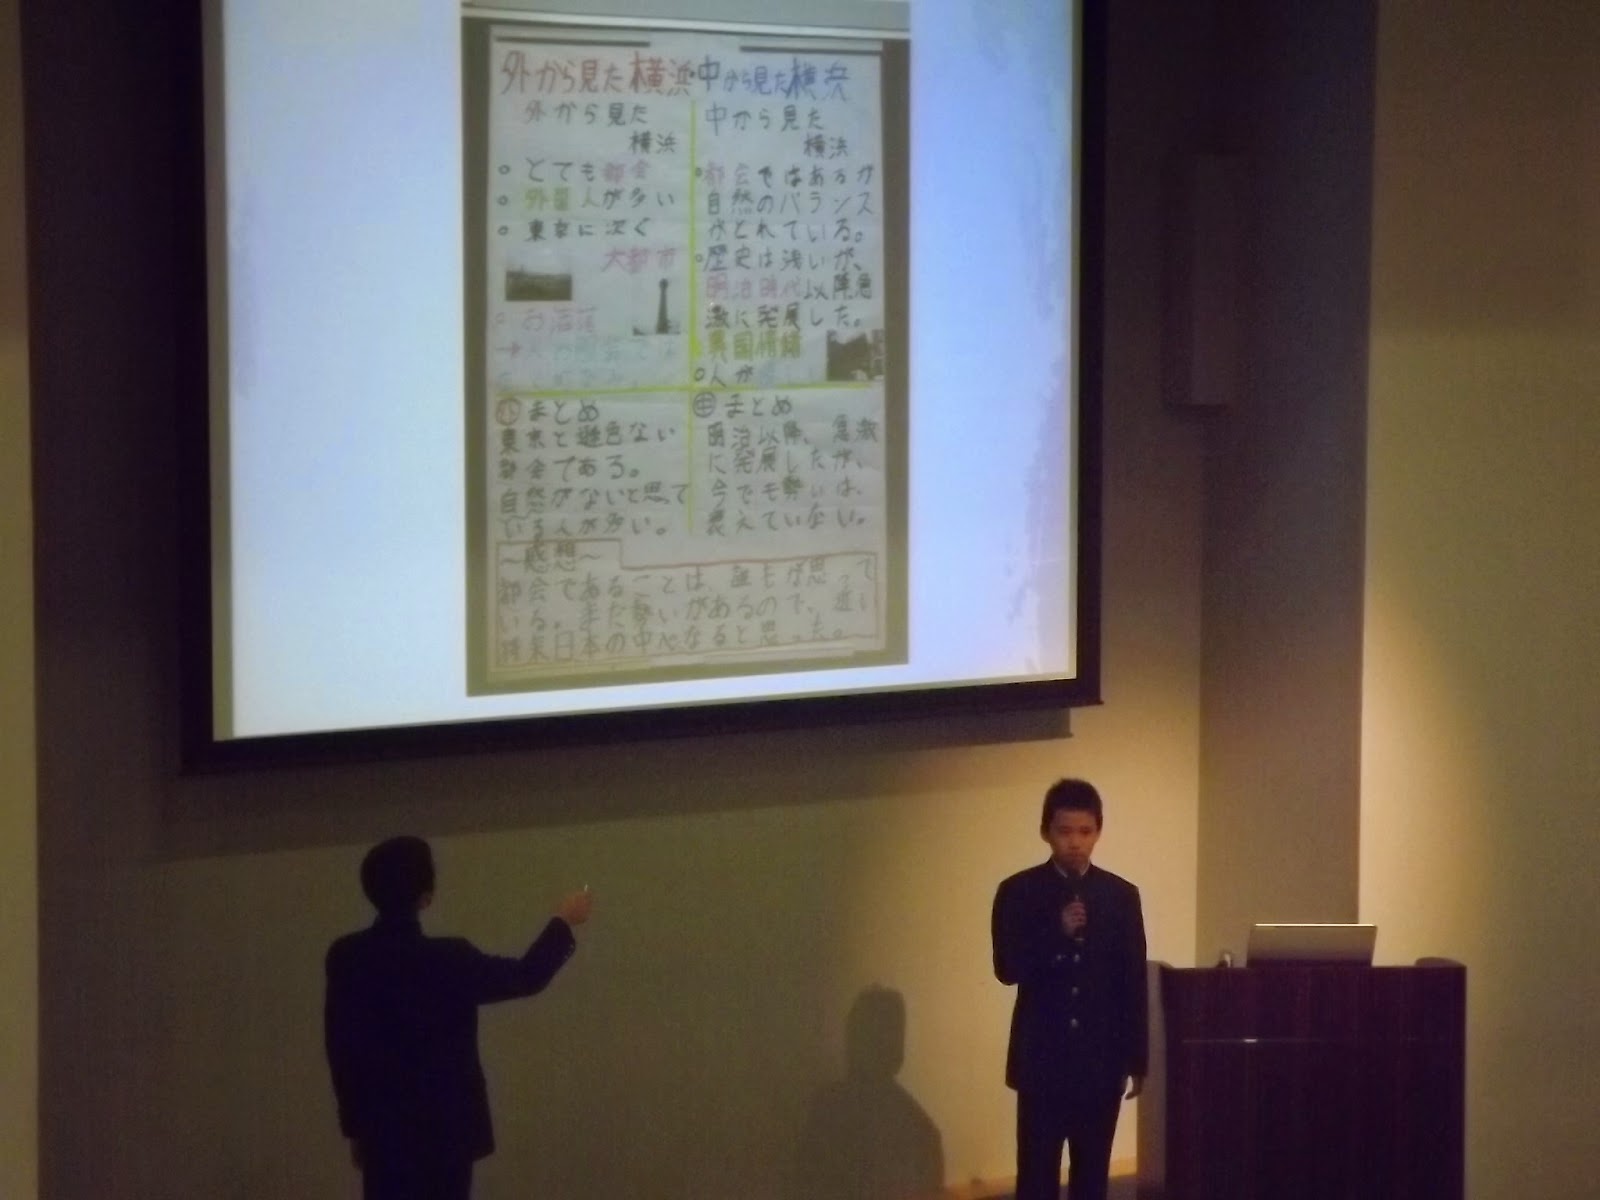 外から見た横浜・中から見た横浜
外から見た
横浜
○とても都会
○外国人が多い
○東京に次ぐ
大都市
○お洒落
中から見た
横浜
○都会ではあるが
自然のバランス
がとれている。
○歴史は浅いが、
明治時代以降急
激に発展した。
○異国情緒
○人が
外まとめ
東京と遜色ない
都会である。
自然がないと思って
いる人が多い。
中まとめ
明治以降、急激
に発展したが、
今でも勢いは、
衰えていない。
～感想～
都会であることは、誰もが思って
いる。まだ勢いがあるので、近い
将来日本の中心になると思った。